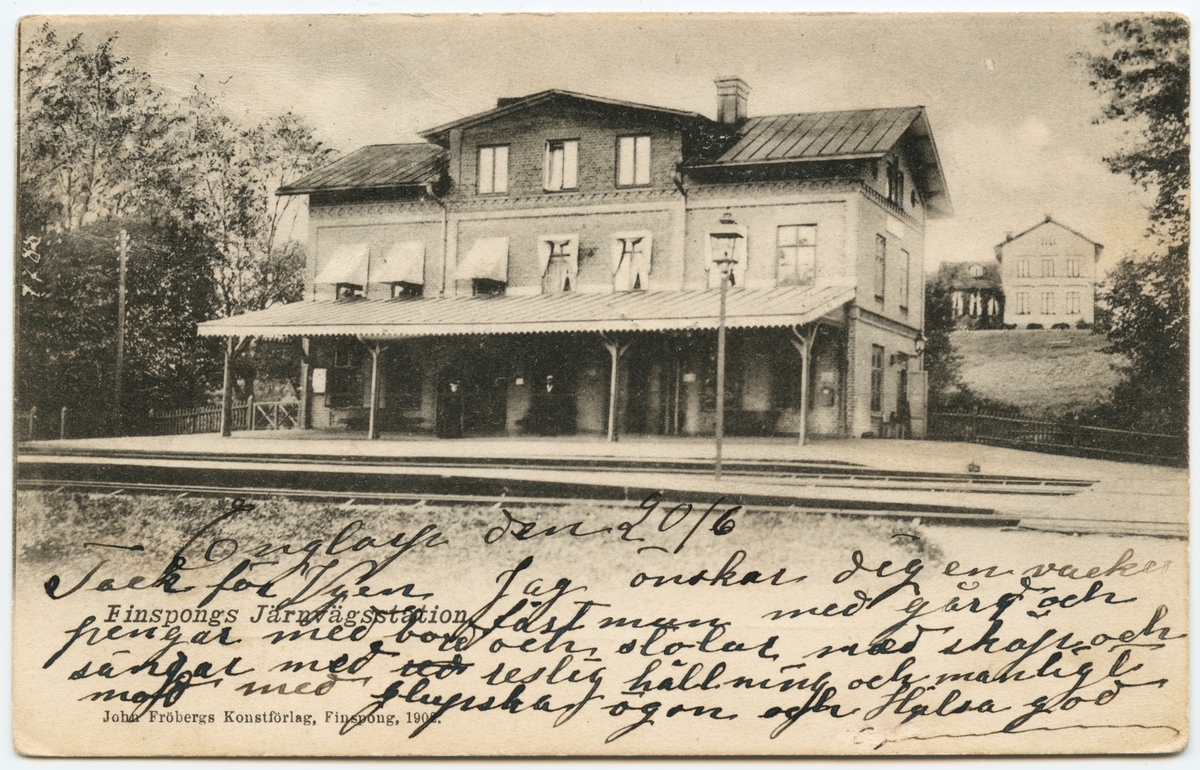 den 20/6
Tack för Vyen Jag önskar dig en vacker
Finspongs Järnvägsstation
fästman med gård och
pengar med bord och stolar med skåp och
sängar med reslig hållning och manligt
mod med glupska ögon och Hälsa god
John Fröbergs Konstförlag, Finspong, 190